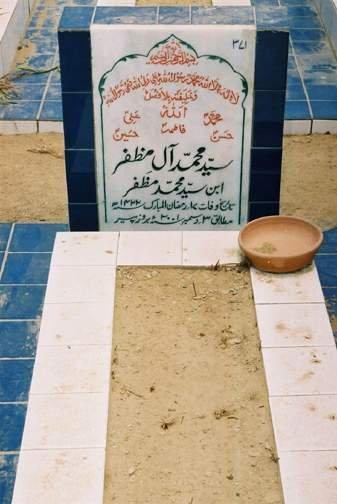 ۳۷۱
بسم اللہ الرحمن الرحیم
لا الہ الا اللہ محمد رسول اللہ علی ولی اللہ وصی رسول اللہ
وخلیفتہ بلا فصل
اللہ
محمد علی
فاطمہ
حسن حسین
سید محمد آل مظفر
ابن سید محمد مظفر
تاریخ وفات رمضان المبارک ۱۴۲۲ھ
مطابق ۳ دسمبر ۲۰۰۱ء بروز پیر